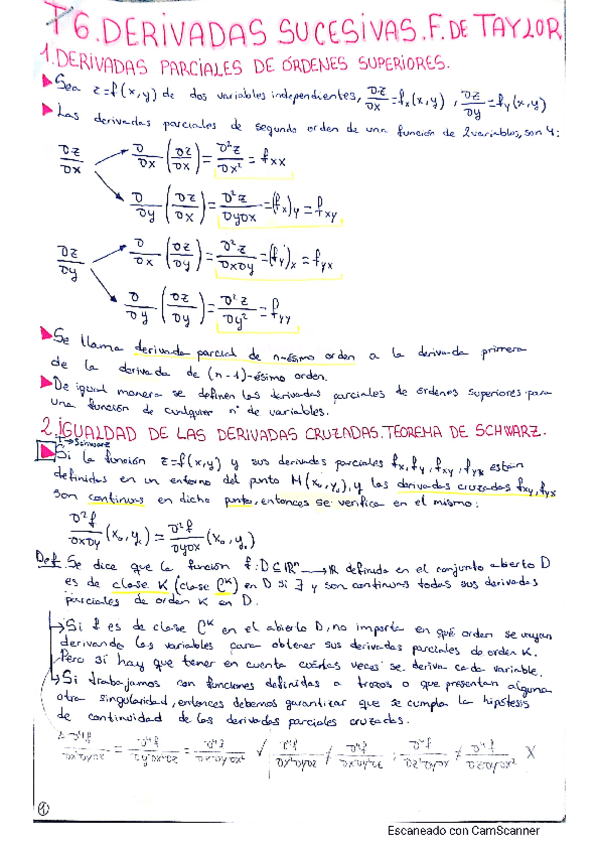 T6. DERIVADAS SUCESIVAS. F. DE TAYLOR
1. DERIVADAS PARCIALES DE ÓRDENES SUPERIORES.
Sea z=f(x,y) de dos variables independientes, ∂z/∂x = fx(x,y), ∂z/∂y = fy(x,y)
Las derivadas parciales de segundo orden de una función de 2 variables, son 4:
∂z/∂x → ∂/∂x (∂z/∂x) = ∂²z/∂x² = fxx
∂/∂y (∂z/∂x) = ∂²z/∂y∂x = (fx)y = fxy
∂z/∂y → ∂/∂x (∂z/∂y) = ∂²z/∂x∂y = (fy)x = fyx
∂/∂y (∂z/∂y) = ∂²z/∂y² = fyy
Se llama derivada parcial de n-ésimo orden a la derivada primera
de la derivada de (n-1)-ésimo orden.
De igual manera se definen las derivadas parciales de órdenes superiores para
una función de cualquier nº de variables.
2. IGUALDAD DE LAS DERIVADAS CRUZADAS. TEOREMA DE SCHWARZ.
→ Schwarz
Si la función z=f(x,y) y sus derivadas parciales fx, fy, fxy, fyx están
definidas en un entorno del punto M(x₀,y₀), y las derivadas cruzadas fxy, fyx
son continuas en dicho punto, entonces se verifica en el mismo:
∂²f/∂x∂y (x₀,y₀) = ∂²f/∂y∂x (x₀,y₀)
Def. Se dice que la función f: D⊆ℝⁿ → ℝ definida en el conjunto abierto D
es de clase K (clase Cᴷ) en D si ∃ y son continuas todas sus derivadas
parciales de orden K en D.
→ Si f es de clase Cᴷ en el abierto D, no importa en qué orden se vayan
derivando las variables para obtener sus derivadas parciales de orden K.
Pero sí hay que tener en cuenta cuántas veces se deriva cada variable.
→ Si trabajamos con funciones definidas a trozos o que presentan alguna
otra singularidad, entonces debemos garantizar que se cumpla la hipótesis
de continuidad de las derivadas parciales cruzadas.
①
Escaneado con CamScanner